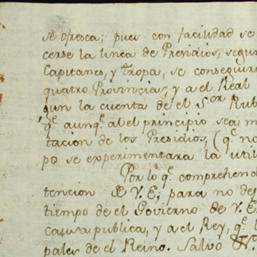 se ofresca; pues con facilidad se
cerse la linea de Presidios, segun
Capitanes, y tropa, se conseguir
quatro Provincias, y a el Real
gun la cuenta de el S.or Rub
q.e aunq.e al principio sea m
tacion de los Presidios, (q.e no
po se experimentara la util
Por lo q.e comprehend
tencion D V.E. para no de
tiempo de el Govierno de V.E
causa publica, y a el Rey, q.e l
pales de el Reino. Salvo &